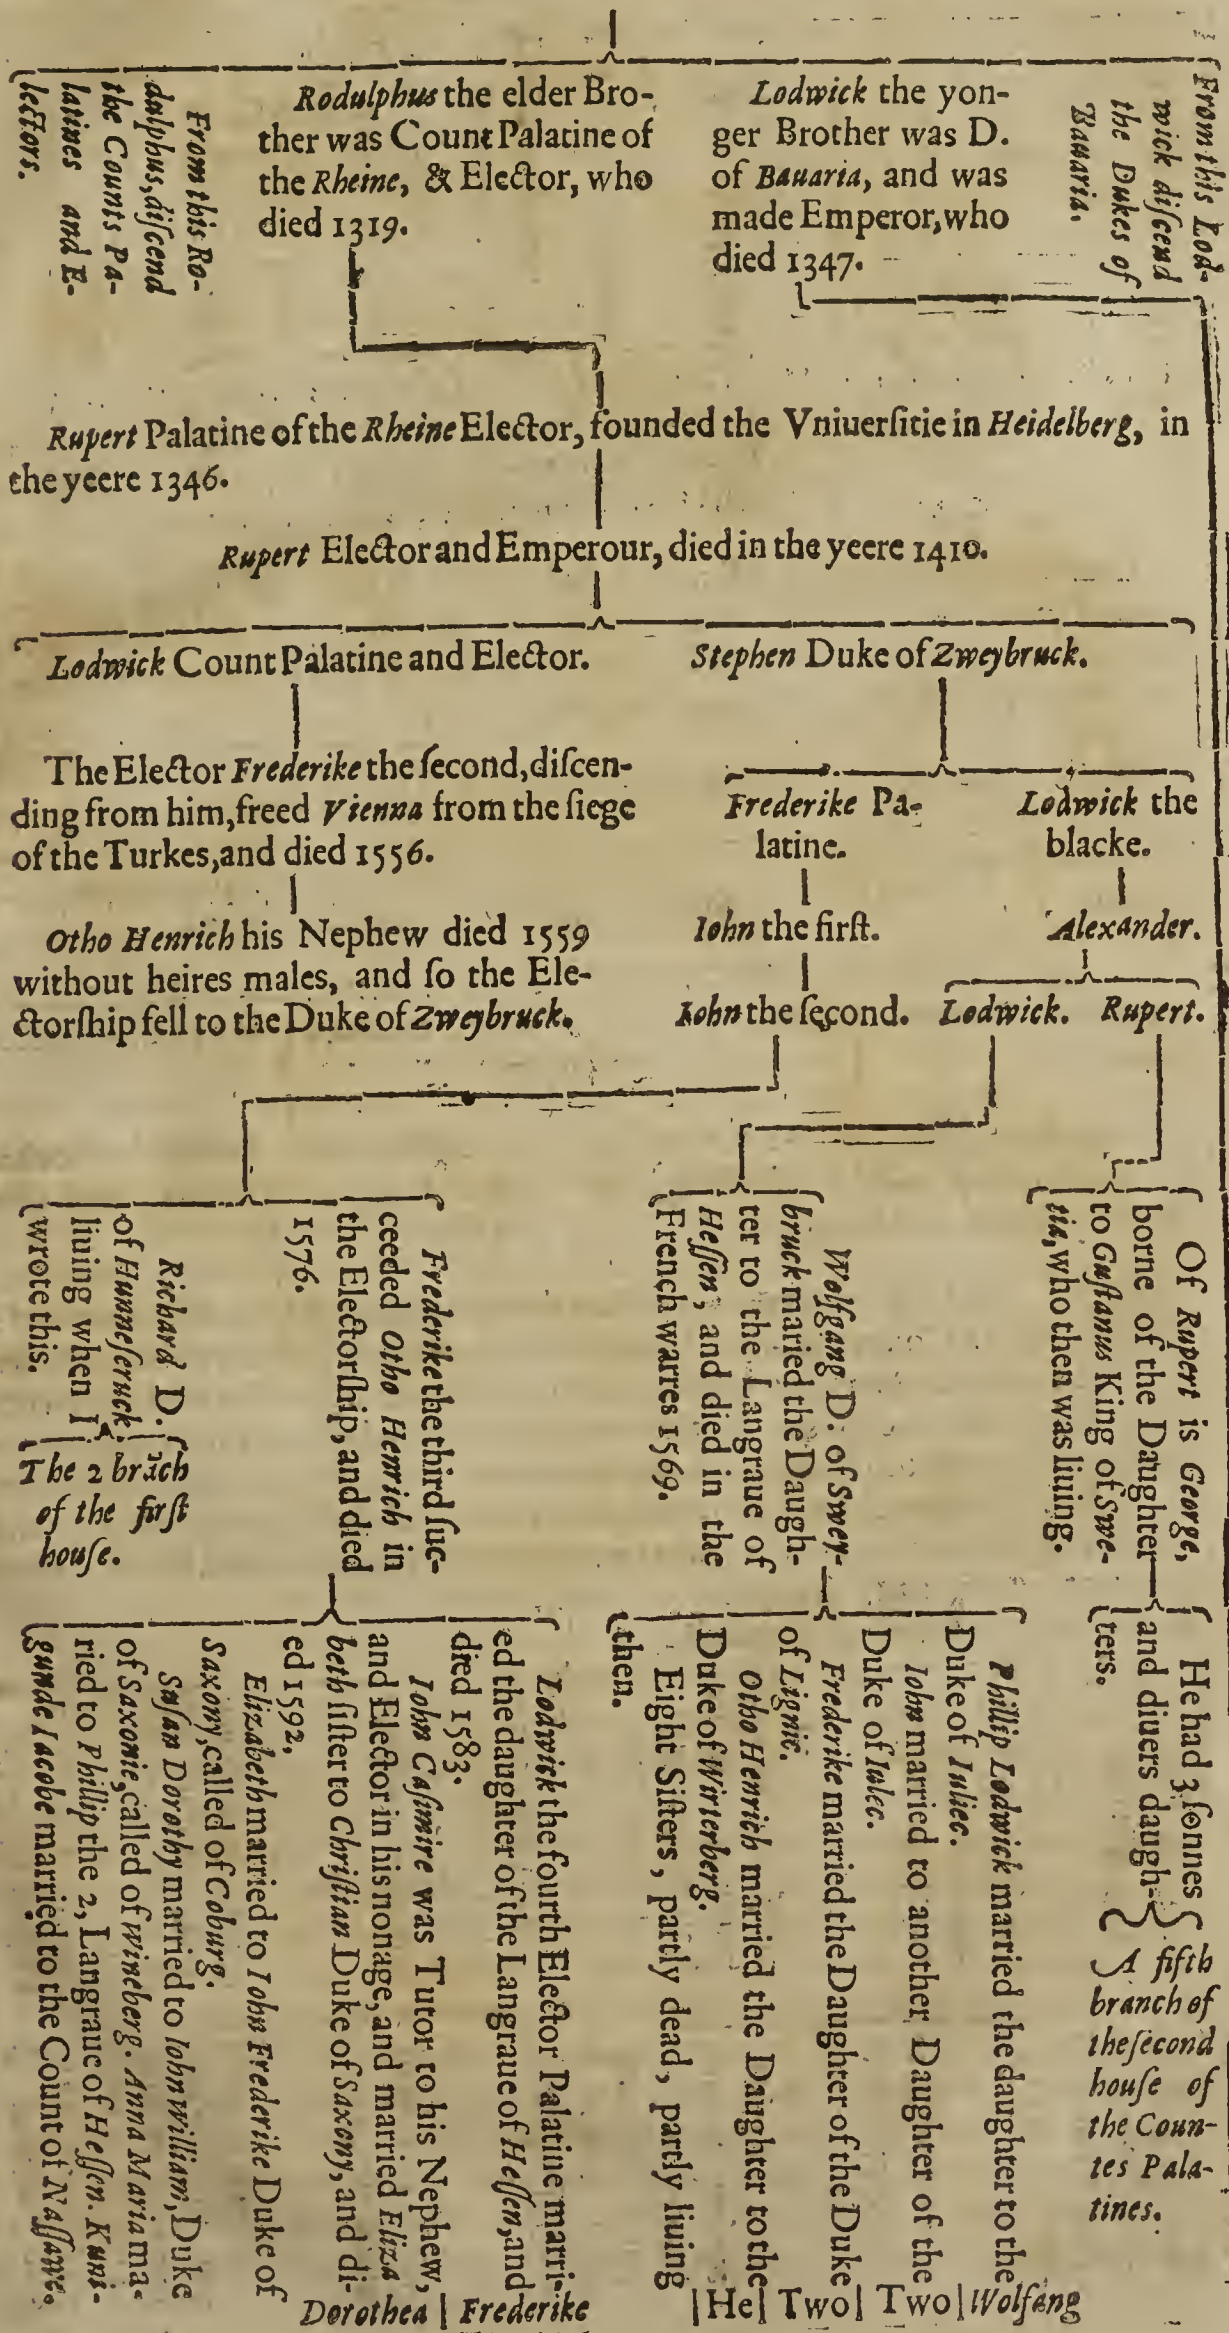 From this Ro-
dulphus, diſcend
the Counts Pa-
latines and E-
lectors.
Rodulphus the elder Bro-
ther was Count Palatine of
the Rheine, & Elector, who
died 1319.
Lodwick the yon-
ger Brother was D.
of Bauaria, and was
made Emperor, who
died 1347.
From this Lod-
wick diſcend
the Dukes of
Bauaria.
Rupert Palatine of the Rheine Elector, founded the Vniuerſitie in Heidelberg, in
the yeere 1346.
Rupert Elector and Emperour, died in the yeere 1410.
Lodwick Count Palatine and Elector.
Stephen Duke of Zweybruck.
The Elector Frederike the ſecond, diſcen-
ding from him, freed Vienna from the ſiege
of the Turkes, and died 1556.
Otho Henrich his Nephew died 1559
without heires males, and ſo the Ele-
ctorſhip fell to the Duke of Zweybruck.
Frederike Pa-
latine.
Lodwick the
blacke.
Iohn the firſt.
Alexander.
Iohn the ſecond.
Lodwick.
Rupert.
Richard D.
of Hunneſeruck
liuing when I
wrote this.
The 2 brāch
of the firſt
houſe.
Frederike the third ſuc-
ceeded Otho Henrich in
the Electorſhip, and died
1576.
Wolfgang D. of Swey-
bruck maried the Daugh-
ter to the Langraue of
Heſſen, and died in the
French warres 1569.
Of Rupert is George,
borne of the Daughter
to Guſtanus King of Swe-
tia, who then was liuing.
Lodwick the fourth Elector Palatine marri-
ed the daughter of the Langraue of Heſſen, and
died 1583.
Iohn Caſimire was Tutor to his Nephew,
and Elector in his nonage, and married Eliza-
beth ſiſter to Chriſtian Duke of Saxony, and di-
ed 1592,
Elizabeth married to Iohn Frederike Duke of
Saxony, called of Coburg.
Suſan Dorothy married to Iohn William, Duke
of Saxonie, called of Wineberg. Anna Maria ma-
ried to Phillip the 2, Langraue of Heſſen. Kuni-
gunde Iacobe married to the Count of Naſſawe.
Phillip Lodwick married the daughter to the
Duke of Iuliec.
Iohn married to another Daughter of the
Duke of Iulec.
Frederike married the Daughter of the Duke
of Lignic.
Otho Henrich married the Daughter to the
Duke of Wirterberg.
Eight Siſters, partly dead, partly liuing
then.
He had 3 ſonnes
and diuers daugh-
ters.
A fifth
branch of
the ſecond
houſe of
the Coun-
tes Pala-
tines.
Dorothea | Frederike
| He | Two | Two | Wolfang